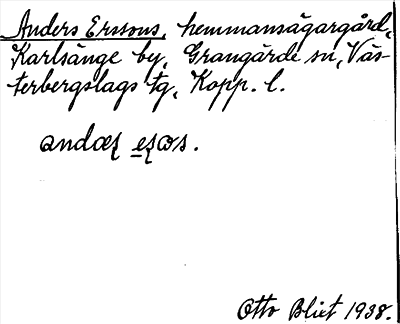 Anders Erssons, hemmansägargård,
Karlsänge by, Grangärde sn, Väs-
terbergslags tg, Kopp. l.
Otto Blixt 1938.